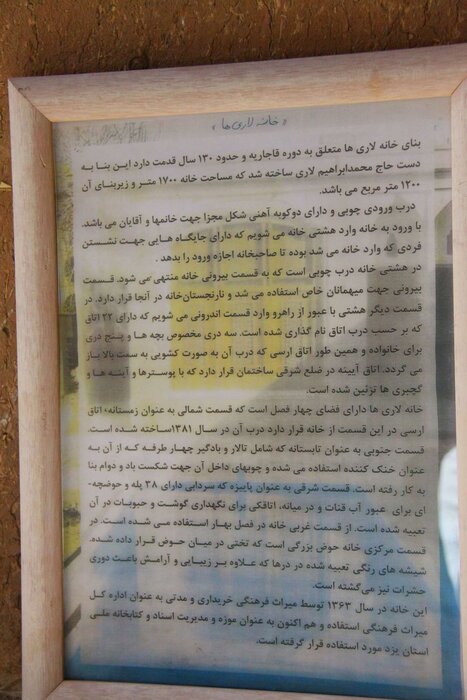 « خانه لاری ها »
بنای خانه لاری ها متعلق به دوره قاجاریه و حدود ۱۳۰ سال قدمت دارد این بنا به
دست حاج محمدابراهیم لاری ساخته شد که مساحت خانه ۱۷۰۰ متر و زیربنای آن
۱۲۰۰ متر مربع می باشد.
درب ورودی چوبی و دارای دوکوبه آهنی شکل مجزا جهت خانمها و آقایان می باشد.
با ورود به خانه وارد هشتی خانه می شویم که دارای جایگاه هایی جهت نشستن
فردی که وارد خانه می شد بوده تا صاحبخانه اجازه ورود را بدهد .
در هشتی خانه درب چوبی است که به قسمت بیرونی خانه منتهی می شود. قسمت
بیرونی جهت میهمانان خاص استفاده می شد و نارنجستان‌خانه در آنجا قرار دارد. در
قسمت دیگر هشتی با عبور از راهرو وارد قسمت اندرونی می شویم که دارای ۲۲ اتاق
که بر حسب درب اتاق نام گذاری شده است. سه دری مخصوص بچه ها و پنج دری
برای خانواده و همین طور اتاق ارسی که درب آن به صورت کشویی به سمت بالا باز
می گردد. اتاق آیینه در ضلع شرقی ساختمان قرار دارد که با پوسترها و آینه ها و
گچبری ها تزئین شده است.
خانه لاری ها دارای فضای چهار فصل است که قسمت شمالی به عنوان زمستانه، اتاق
ارسی در این قسمت از خانه قرار دارد درب آن در سال ۱۳۸۱ساخته شده است.
قسمت جنوبی به عنوان تابستانه که شامل تالار و بادگیر چهار طرفه که از آن به
عنوان خنک کننده استفاده می شده و چوبهای داخل آن جهت شکست باد و دوام بنا
به کار رفته است. قسمت شرقی به عنوان پاییزه که سردابی دارای ۳۸ پله و حوضچه-
ای برای عبور آب قنات و در میانه، اتاقکی برای نگهداری گوشت و حبوبات در آن
تعبیه شده است. از قسمت غربی خانه در فصل بهار استفاده می شده است. در
قسمت مرکزی خانه حوض بزرگی است که تختی در میان حوض قرار داده شده.
شیشه های رنگی تعبیه شده در درها که علاوه بر زیبایی و آرامش باعث دوری
حشرات نیز می‌گشته است.
این خانه در سال ۱۳۶۳ توسط میراث فرهنگی خریداری و مدتی به عنوان اداره کل
میراث فرهنگی استفاده و هم اکنون به عنوان موزه و مدیریت اسناد و کتابخانه ملی
استان یزد مورد استفاده قرار گرفته است.